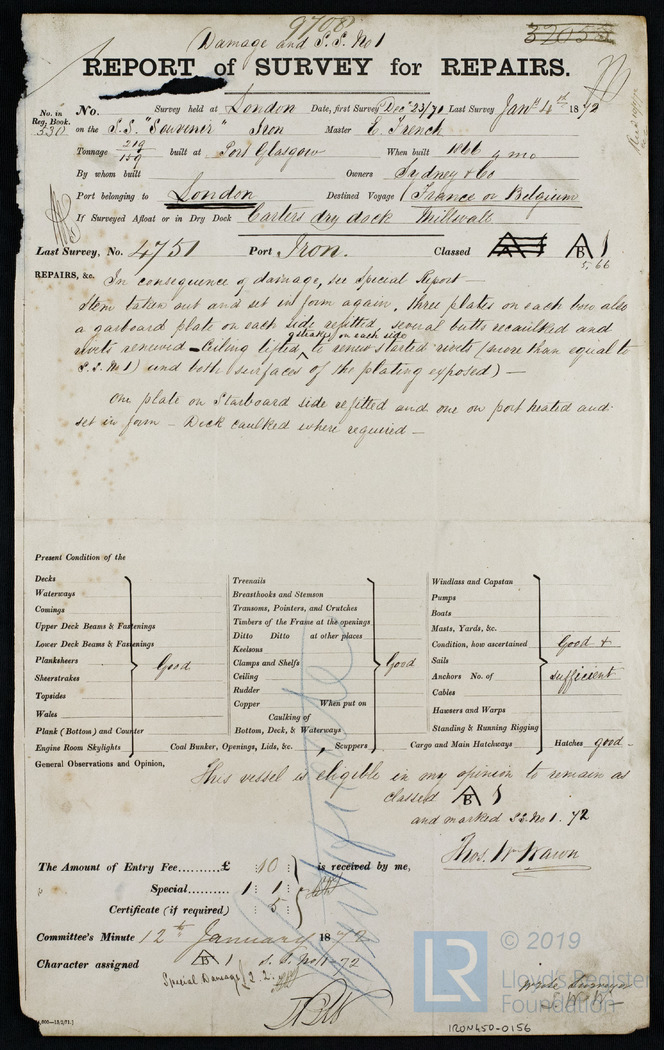 9708
32055
Damage and S.S. No 1
REPORT of SURVEY for REPAIRS.
No. in Reg. Book. 530
No. Survey held at London Date, first Survey Dec 23/71 Last Survey Jany 4th 1872
on the S.S. "Souvenir" Iron Master E. French
Tonnage 219 / 159 built at Port Glasgow When built 1866 4 mo
By whom built Owners Sydney & Co
Port belonging to London Destined Voyage France or Belgium
If Surveyed Afloat or in Dry Dock Carters dry dock Millwall
Last Survey, No. 4751 Port Iron. Classed A 1 B 1
5, 66
REPAIRS, &c. In consequence of damage, see Special Report —
Stem taken out and set in form again, three plates on each bow also
a garboard plate on each side refitted, several butts recaulked and
rivets renewed — Ceiling lifted 4 strakes on each side to renew started rivets (more than equal to
S.S. No 1) and both surfaces of the plating exposed) —
One plate on Starboard side refitted and one on port heated and
set in form — Deck caulked where required —
Present Condition of the
Decks
Waterways
Comings
Upper Deck Beams & Fastenings
Lower Deck Beams & Fastenings
Planksheers
Sheerstrakes
Topsides
Wales
Plank (Bottom) and Counter
Engine Room Skylights
Good
Treenails
Breasthooks and Stemson
Transoms, Pointers, and Crutches
Timbers of the Frame at the openings
Ditto Ditto at other places
Keelsons
Clamps and Shelfs
Ceiling
Rudder
Copper When put on
Caulking of
Bottom, Deck, & Waterways
Coal Bunker, Openings, Lids, &c. , Scuppers
Good
Windlass and Capstan
Pumps
Boats
Masts, Yards, &c.
Condition, how ascertained
Sails
Anchors No. of
Cables
Hawsers and Warps
Standing & Running Rigging
Cargo and Main Hatchways
Good & sufficient
Hatches good
General Observations and Opinion,
This vessel is eligible in my opinion to remain as
classed B 1
and marked S.S. No 1. 72
Thos. W Wawn
The Amount of Entry Fee..........£ 10 : is received by me,
" Special.......... 1 : 1 :
Certificate (if required) : 5 :
Committee's Minute 12th January 1872
Character assigned B 1 S.S. No 1-72
Special Damage £2.2.
IRON450-0156
LR © 2019
Lloyd's Register
Foundation